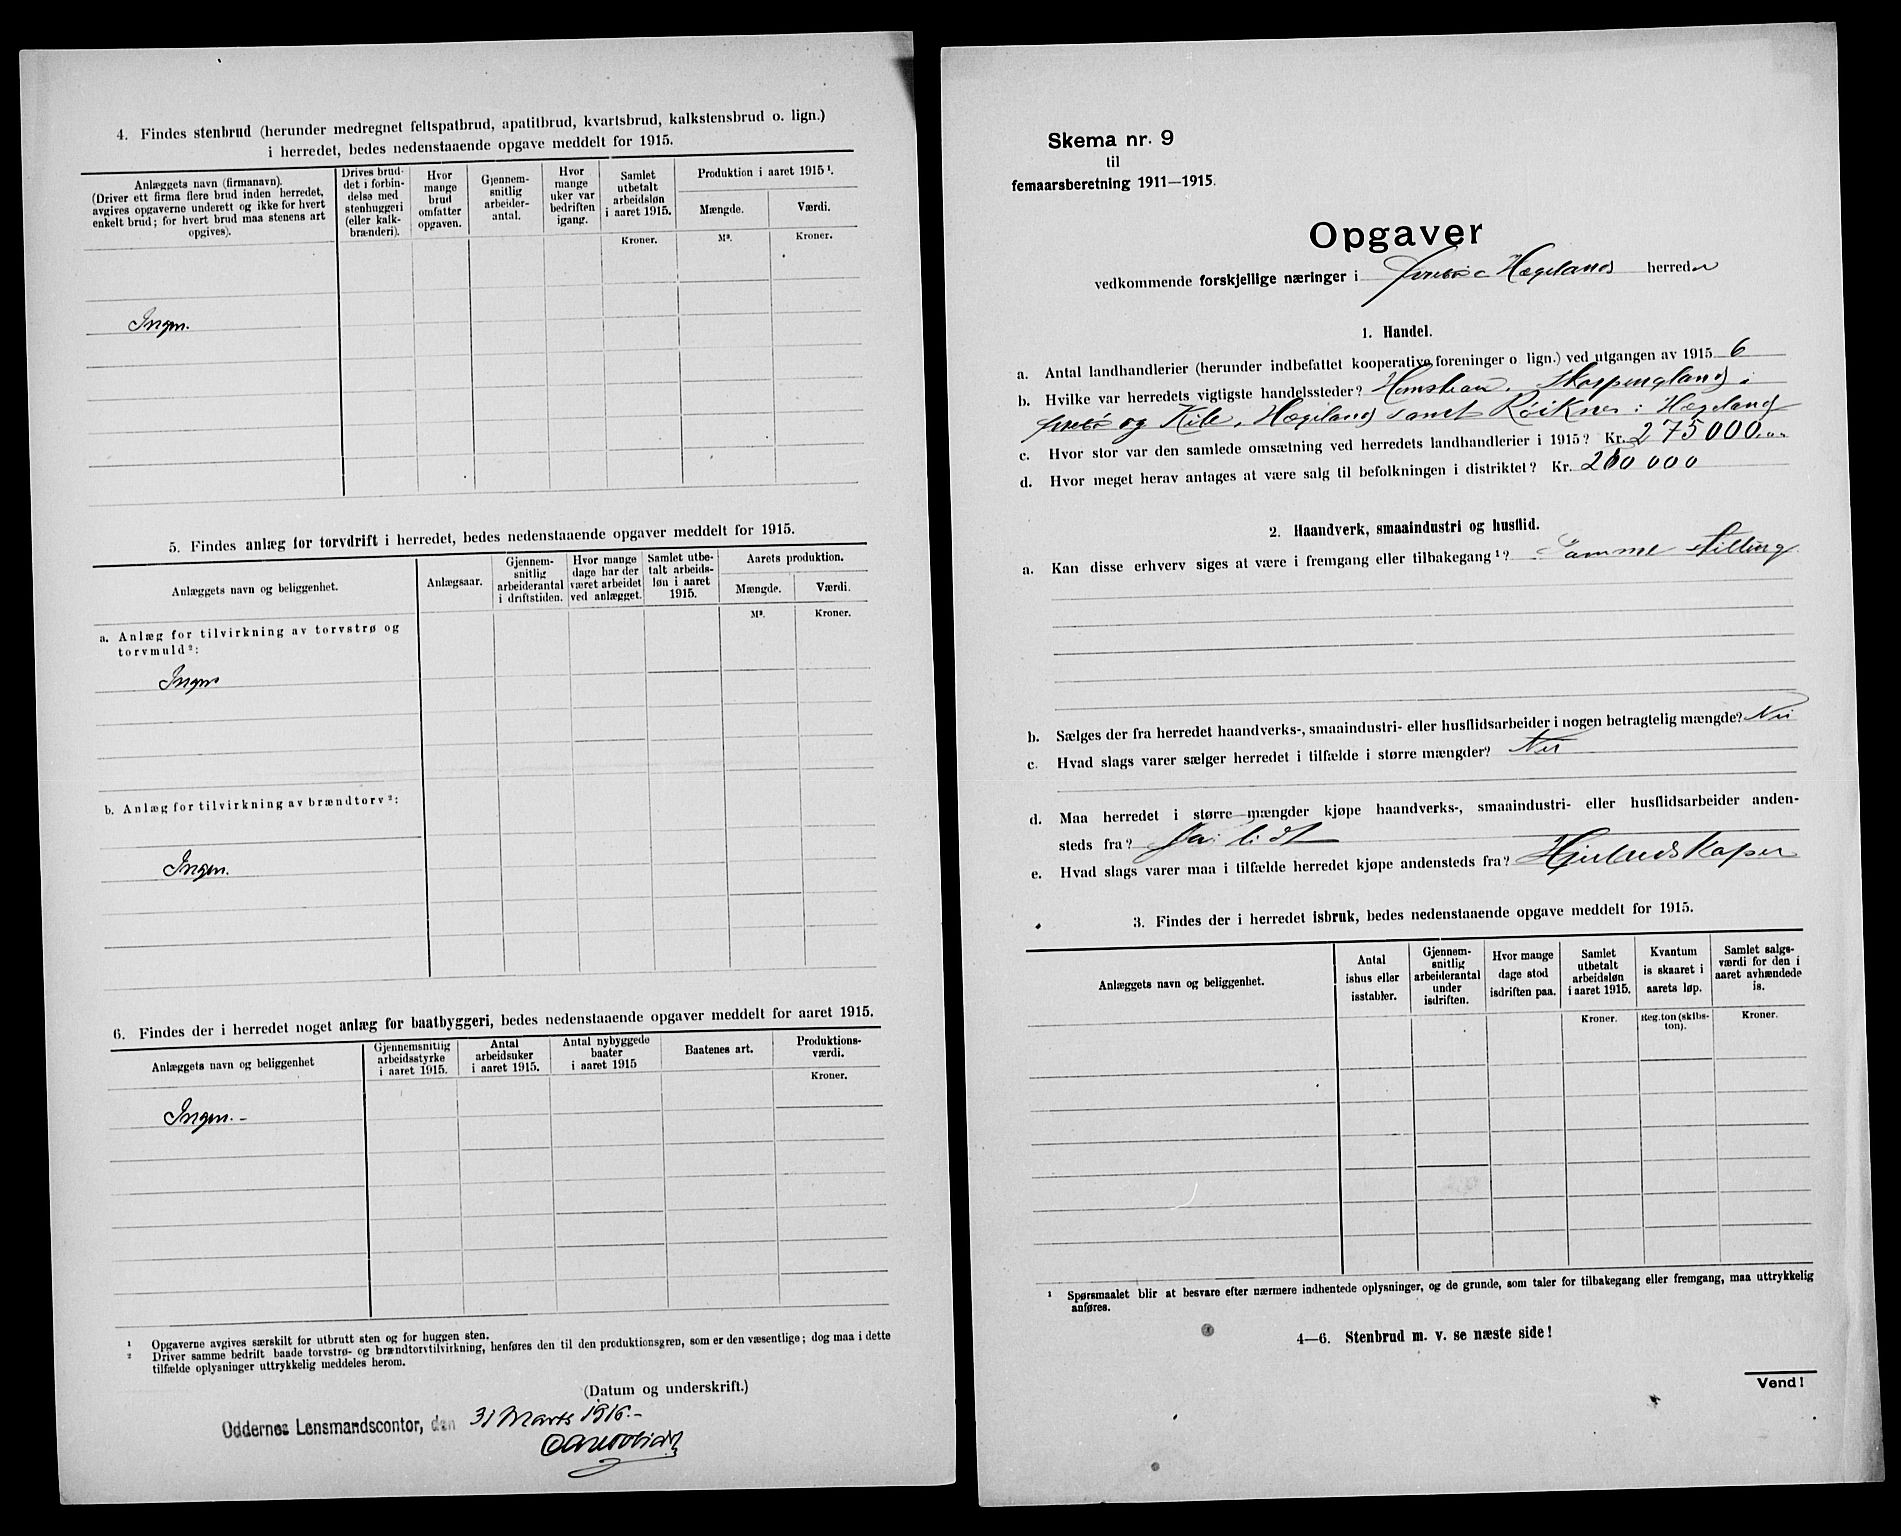 4. Findes stenbrud (herunder medregnet feltspatbrud, apatitbrud, kvartsbrud, kalkstensbrud o. lign.)
i herredet, bedes nedenstaaende opgave meddelt for 1915.
Anlæggets navn (firmanavn).
(Driver ett firma flere brud inden herredet,
avgives opgaverne underett og ikke for hvert
enkelt brud; for hvert brud maa stenens art
opgives).
Drives brud-
det i forbin-
delse med
stenhuggeri
(eller kalk-
brænderi).
Hvor
mange
brud
omfatter
opgaven.
Gjennem-
snitlig
arbeider-
antal.
Hvor
mange
uker var
bedriften
igang.
Samlet
utbetalt
arbeidsløn
i aaret 1915.
Produktion i aaret 1915 ¹.
Mængde.
Værdi.
Kroner.
M³.
Kroner.
Ingen.
5. Findes anlæg for torvdrift i herredet, bedes nedenstaaende opgaver meddelt for 1915.
Anlæggets navn og beliggenhet.
Anlægsaar.
Gjennem-
snitlig
arbeiderantal
i driftstiden.
Hvor mange
dage har der
været arbeidet
ved anlægget.
Samlet utbe-
talt arbeids-
løn i aaret
1915.
Aarets produktion.
Mængde.
Værdi.
M³.
Kroner.
a. Anlæg for tilvirkning av torvstrø og
torvmuld ²:
Ingen
b. Anlæg for tilvirkning av brændtorv ²:
Ingen.
6. Findes der i herredet noget anlæg for baatbyggeri, bedes nedenstaaende opgaver meddelt for aaret 1915.
Anlæggets navn og beliggenhet
Gjennemsnitlig
arbeidsstyrke
i aaret 1915.
Antal
arbeidsuker
i aaret 1915.
Antal nybyggede
baater
i aaret 1915
Baatenes art.
Produktions-
værdi.
Kroner.
Ingen.-
¹ Opgaverne avgives særskilt for utbrutt sten og for huggen sten.
² Driver samme bedrift baade torvstrø- og brændtorvtilvirkning, henføres den til den produktionsgren, som er den væsentlige; dog maa i dette
tilfælde oplysninger uttrykkelig meddeles herom.
(Datum og underskrift.)
Oddernes Lensmandscontor, den 31 Marts 1916.-
Skema nr. 9
til
femaarsberetning 1911—1915.
Opgaver
vedkommende forskjellige næringer i Hægeland herreder
1. Handel.
a. Antal landhandlerier (herunder indbefattet kooperative foreninger o lign.) ved utgangen av 1915 6
b. Hvilke var herredets vigtigste handelssteder? Homstean, Skarpengland i
og Kile, Hægeland samt Røiknes i Hægeland
c. Hvor stor var den samlede omsætning ved herredets landhandlerier i 1915? Kr. 275000.00
d. Hvor meget herav antages at være salg til befolkningen i distriktet? Kr. 200 000
2. Haandverk, smaaindustri og husflid.
a. Kan disse erhverv siges at være i fremgang eller tilbakegang ¹? Samme stilling
b. Sælges der fra herredet haandverks-, smaaindustri- eller husflidsarbeider i nogen betragtelig mængde? Nei
c. Hvad slags varer sælger herredet i tilfælde i større mængder? Nei
d. Maa herredet i større mængder kjøpe haandverks-, smaaindustri- eller husflidsarbeider anden-
steds fra? Ja lidt
e. Hvad slags varer maa i tilfælde herredet kjøpe andensteds fra? Hjulredskaper
3. Findes der i herredet isbruk, bedes nedenstaaende opgave meddelt for 1915.
Anlæggets navn og beliggenhet.
Antal
ishus eller
isstabler.
Gjennem-
snitlig
arbeiderantal
under
isdriften.
Hvor mange
dage stod
isdriften paa.
Samlet
utbetalt
arbeidsløn
i aaret 1915.
Kvantum
is skaaret i
aarets løp.
Samlet salgs-
værdi for den i
aaret avhændede
is.
Kroner.
Reg.ton (skibs-
ton).
Kroner.
¹ Spørsmaalet blir at besvare efter nærmere indhentede oplysninger, og de grunde, som taler for tilbakegang eller fremgang, maa uttrykkelig
anføres.
4—6. Stenbrud m. v. se næste side!
Vend!